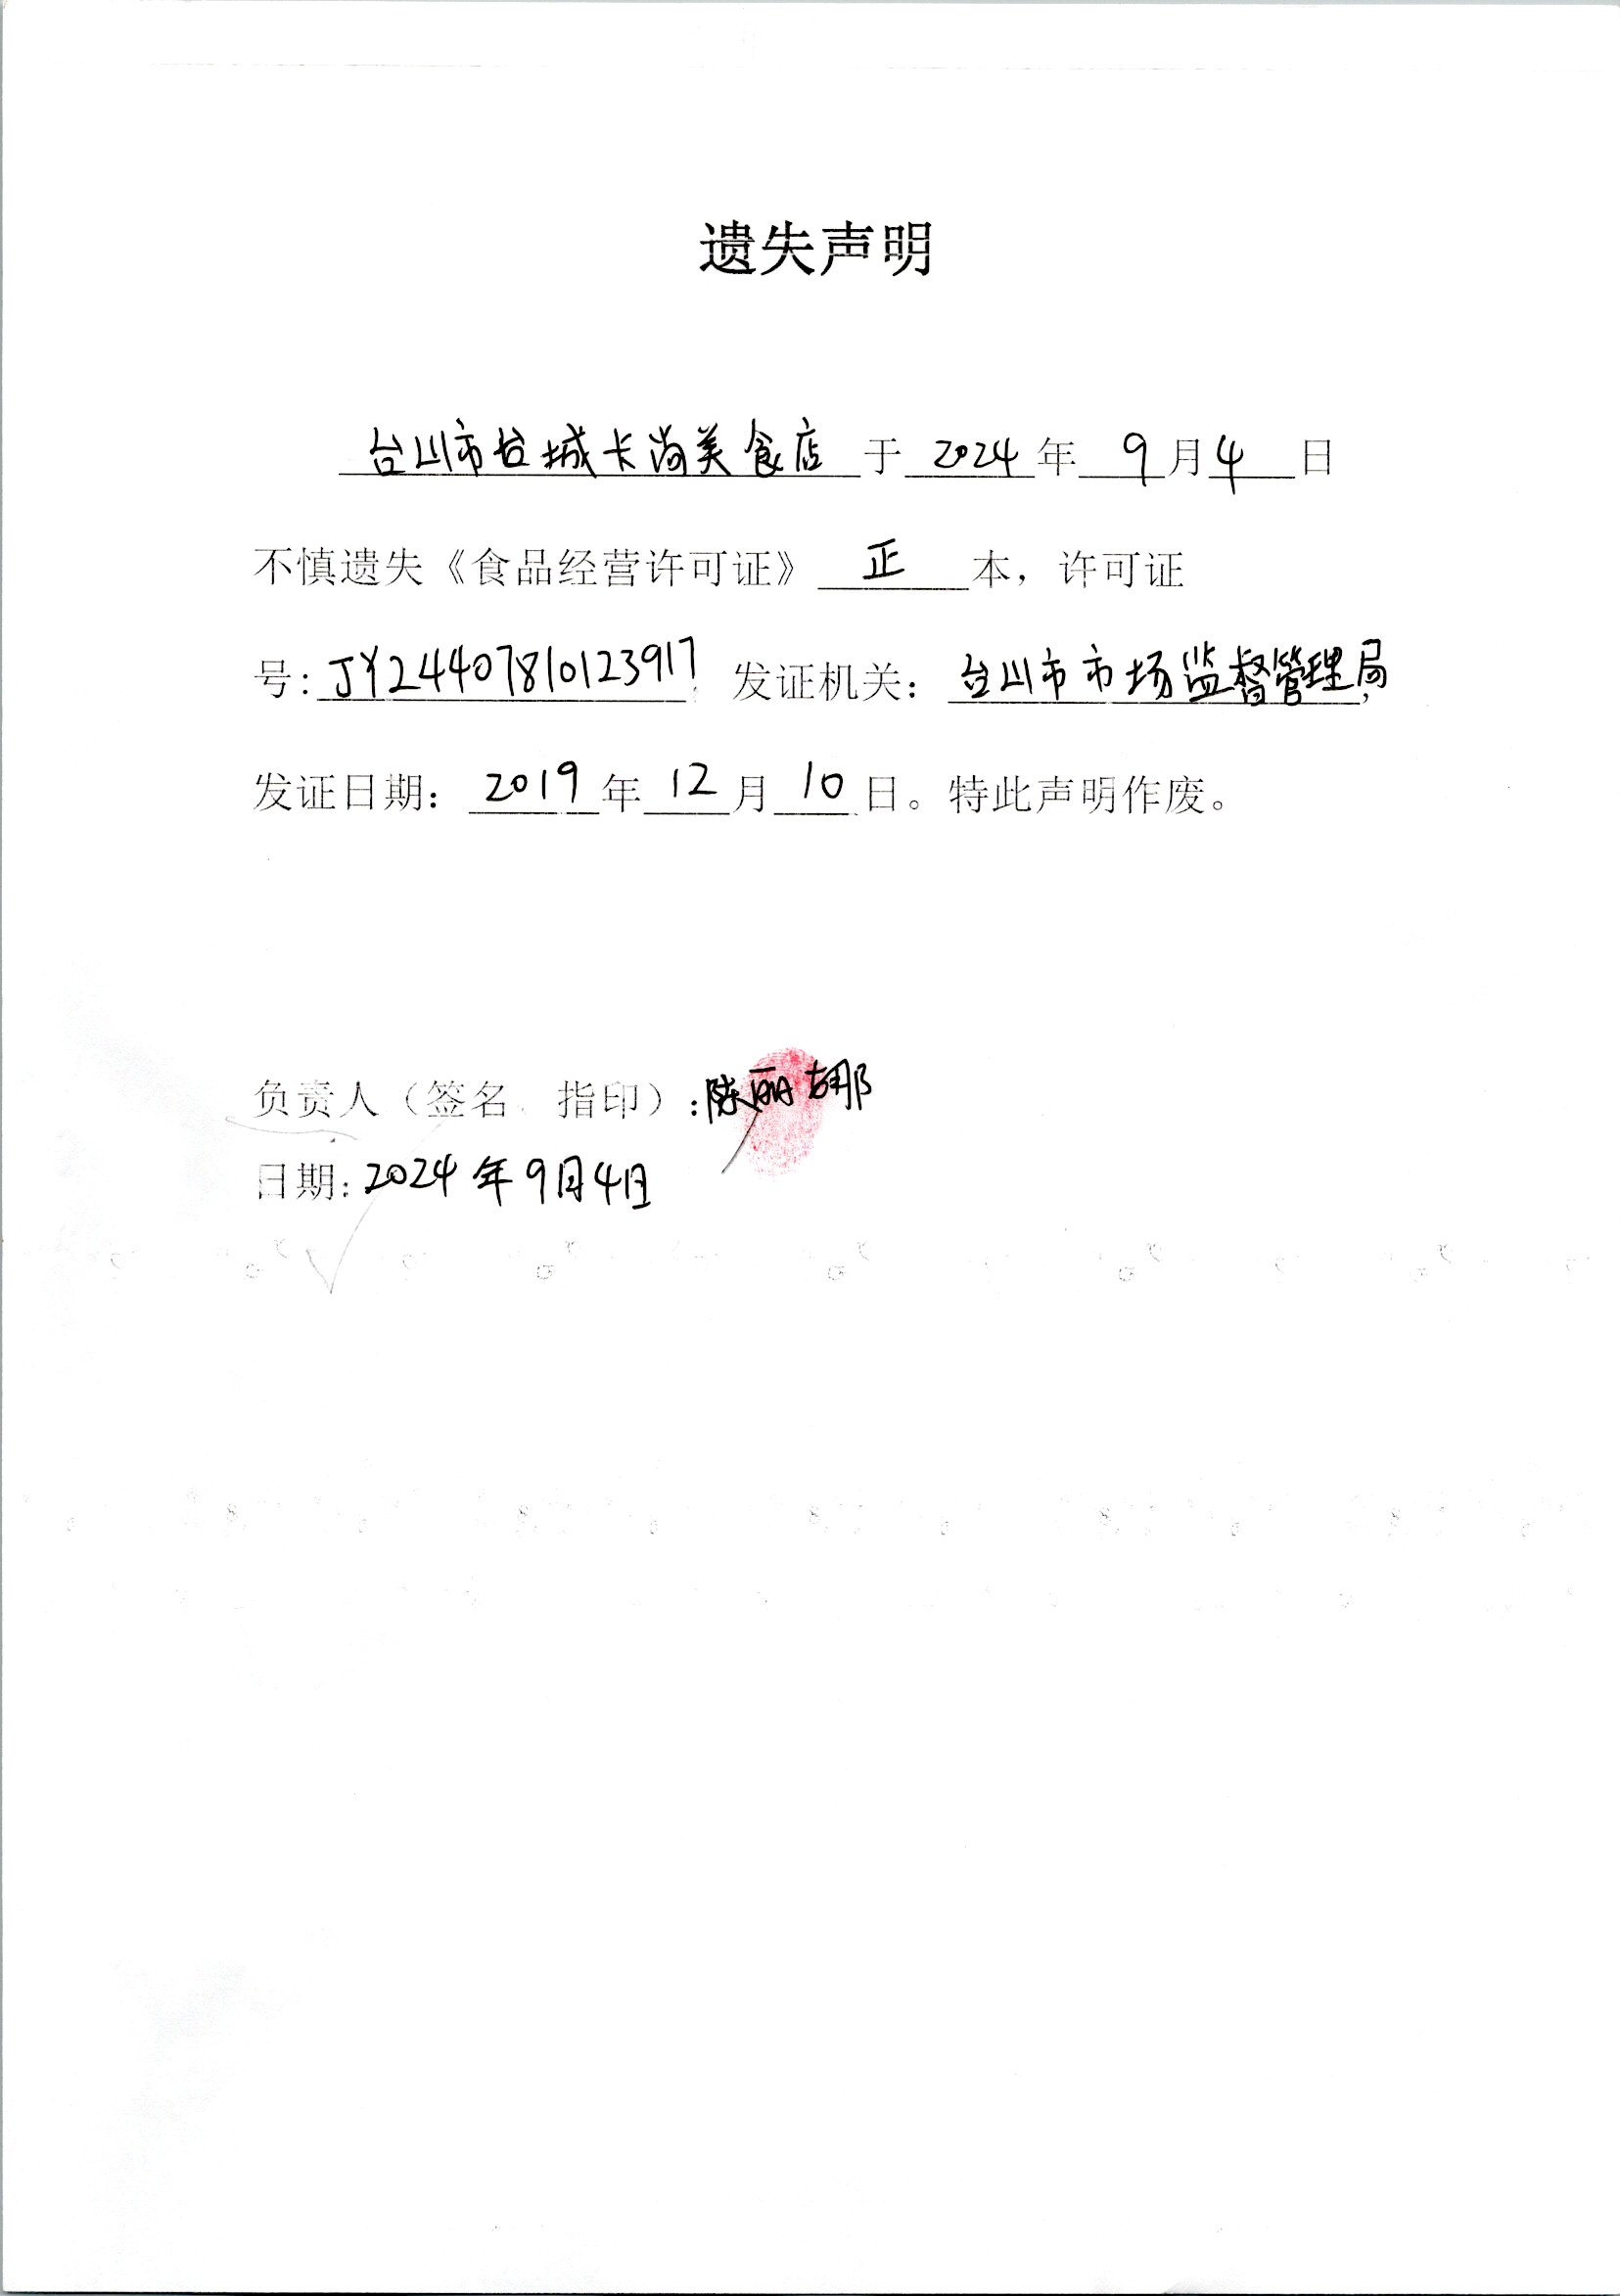 遗失声明
台山市台城卡尚美食店于2024年9月4日
不慎遗失《食品经营许可证》正本，许可证
号：JY24407810123917，发证机关：台山市市场监督管理局，
发证日期：2019年12月10日。特此声明作废。
负责人（签名、指印）：陈丽娜
日期：2024年9月4日